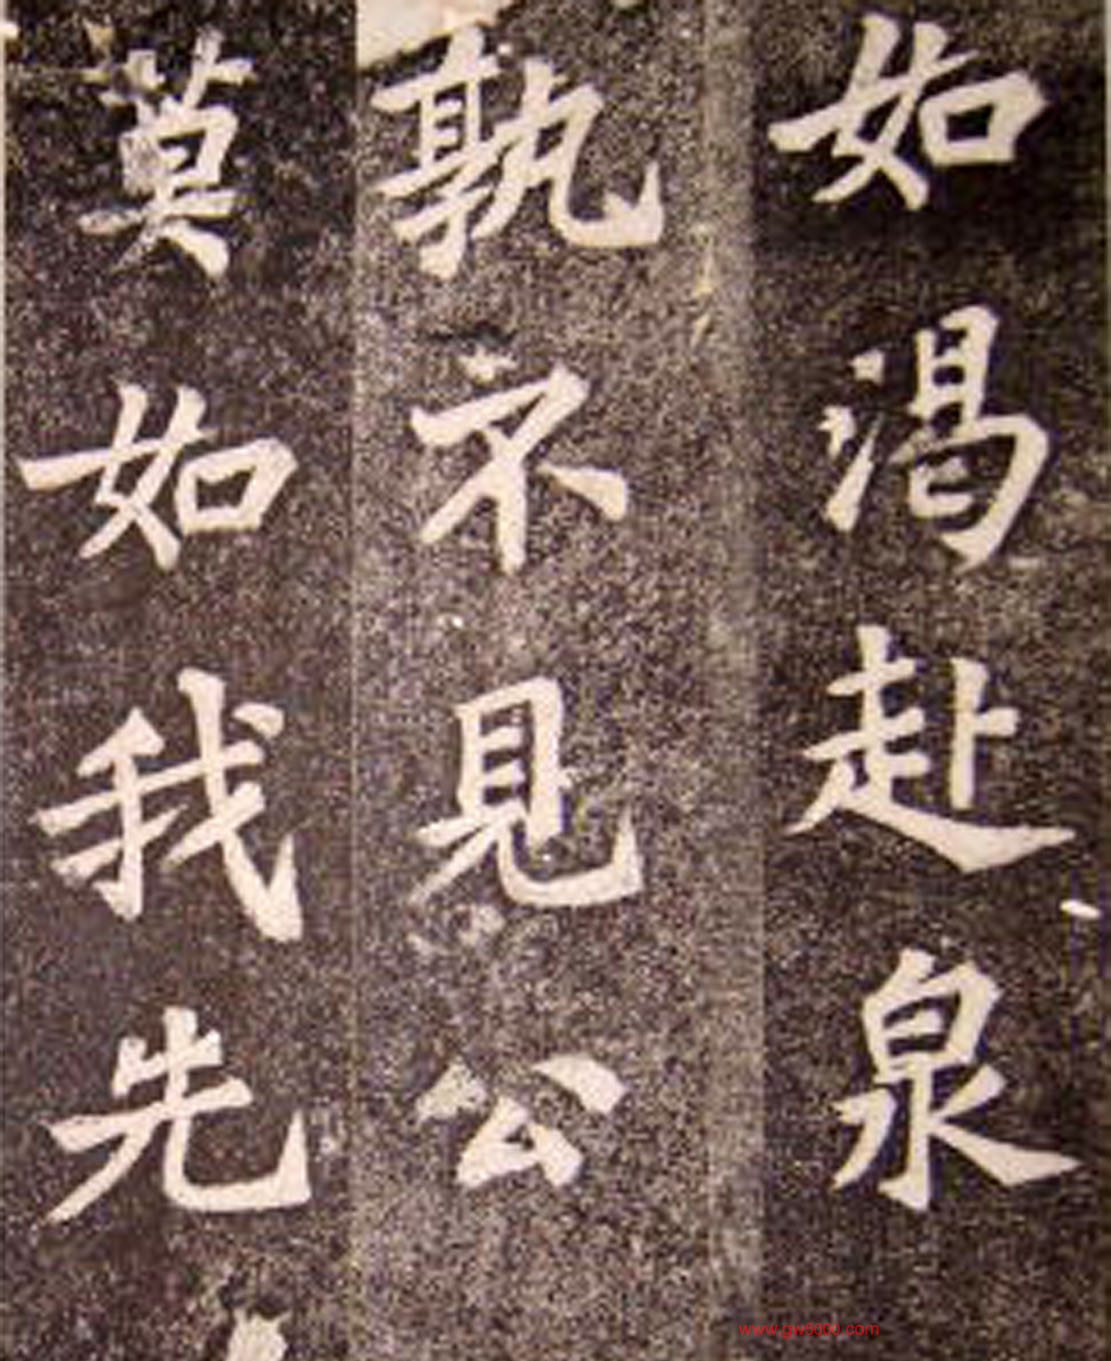 如渴赴泉
孰不見公
莫如我先
www.gw5000.com